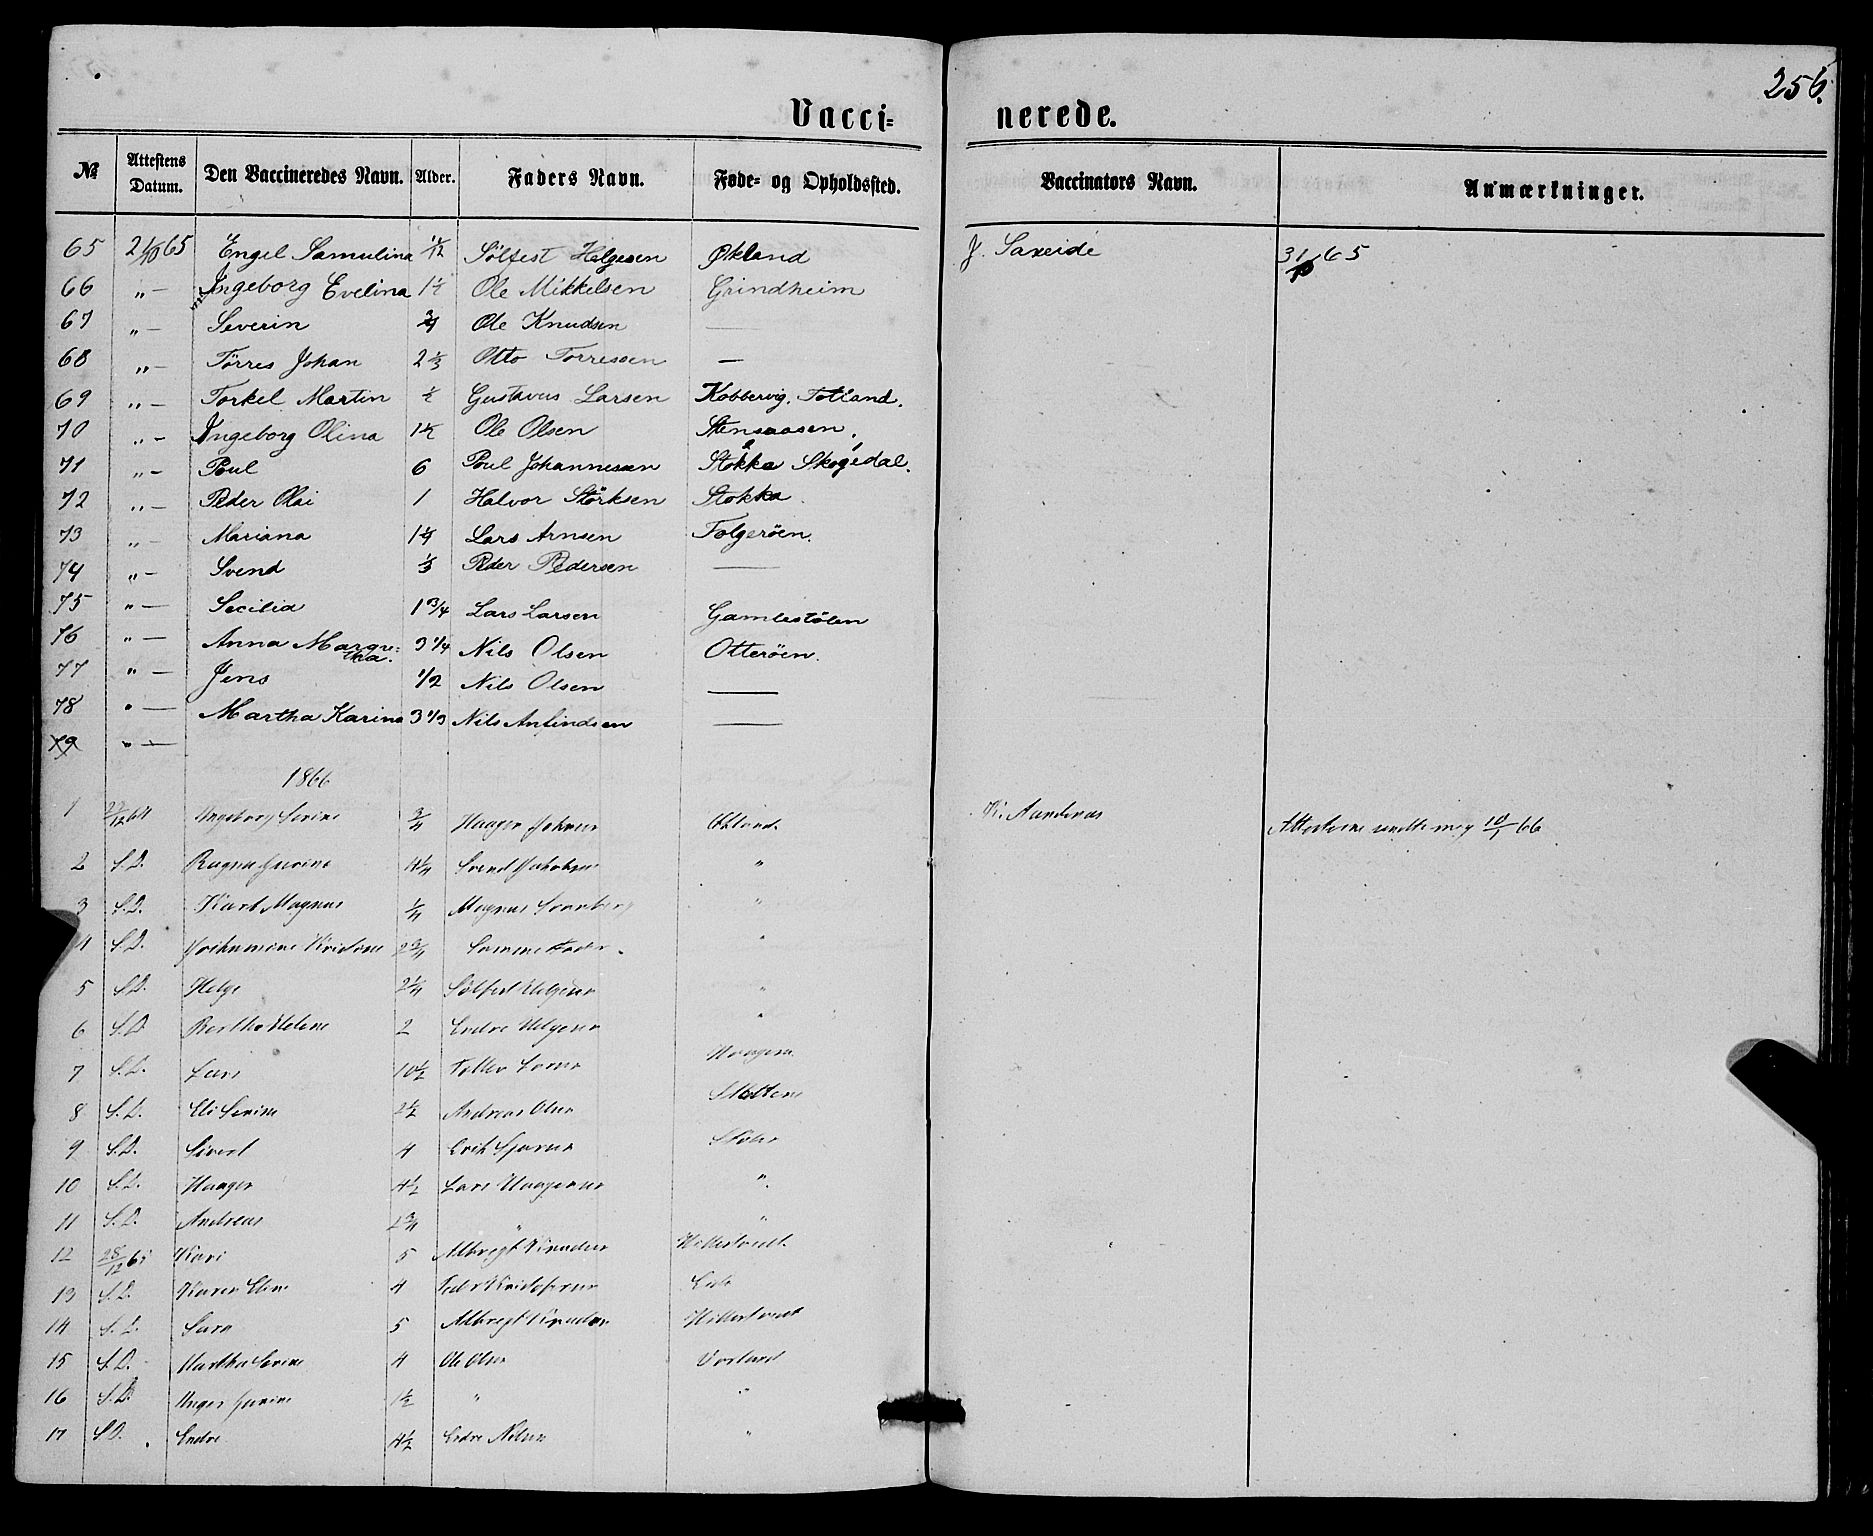 256.
Vacci- nerede.
№ Attestens Datum. Den Vaccineredes Navn. Alder. Faders Navn. Føde- og Opholdssted. Vaccinators Navn. Anmærkninger.
65 21/10 65 Engel Samulina 1/12 Sölfest Helgesen Økland J. Saxeide 31/10 65
66 " — Ingeborg Evelina 1½ Ole Mikkelsen Grindheim
67 " — Severin ¾ Ole Knudsen —
68 " — Törres Johan 2⅓ Otto Torresen —
69 " — Torkel Martin ½ Gustavus Larsen Kobbervig, Totland.
70 " — Ingeborg Olina 1½ Ole Olsen Stensaasen.
71 " — Poul 6 Poul Johannesen Stokka Skogedal.
72 " — Peder Olai 1 Halvor Störksen Stokka
73 " — Mariana 1¼ Lars Arnsen Folgeröen.
74 " — Svend ⅓ Peder Pedersen —
75 " — Secilia 1 3/4 Lars Larsen Gamlestölen
76 " — Anna Margre=
tha. 3 1/4 Nils Olsen Otteröen.
77 " — Jens 1/2 Nils Olsen —
78 " — Martha Karina 3 1/3 Nils Anfindsen —
79 " —
1866
1 Ingeborg Serine ¾ Haagen Økland.
2 S.D. Svend Jakobsen "
3 S.D. Karl Magnus ¼ Magnus "
4 S.D. 2¾ Samme Fader. "
5 S.D. Helge 2¼ Sölfest Helgesen "
6 S.D. Bertha Helene 2 Endre Helgesen "
7 S.D. Lars 10½
8 S.D. Eli Serine 2½ Andreas Olsen
9 S.D. Sivert 4 Erik
10 S.D. Haagen 4½ Lars Haagensen "
11 S.D. Andreas 2¾ " "
12 28/12 65 Kari 5 Albregt Knudsen
13 S.D. Karen Eline 4 Eide
14 S.D. Sara 5 Albregt Knudsen
15 S.D. Martha Serine 4 Ole Olsen Vorland
16 S.D. 1½ " "
17 S.D. Endre 4½ Endre Nilsen "